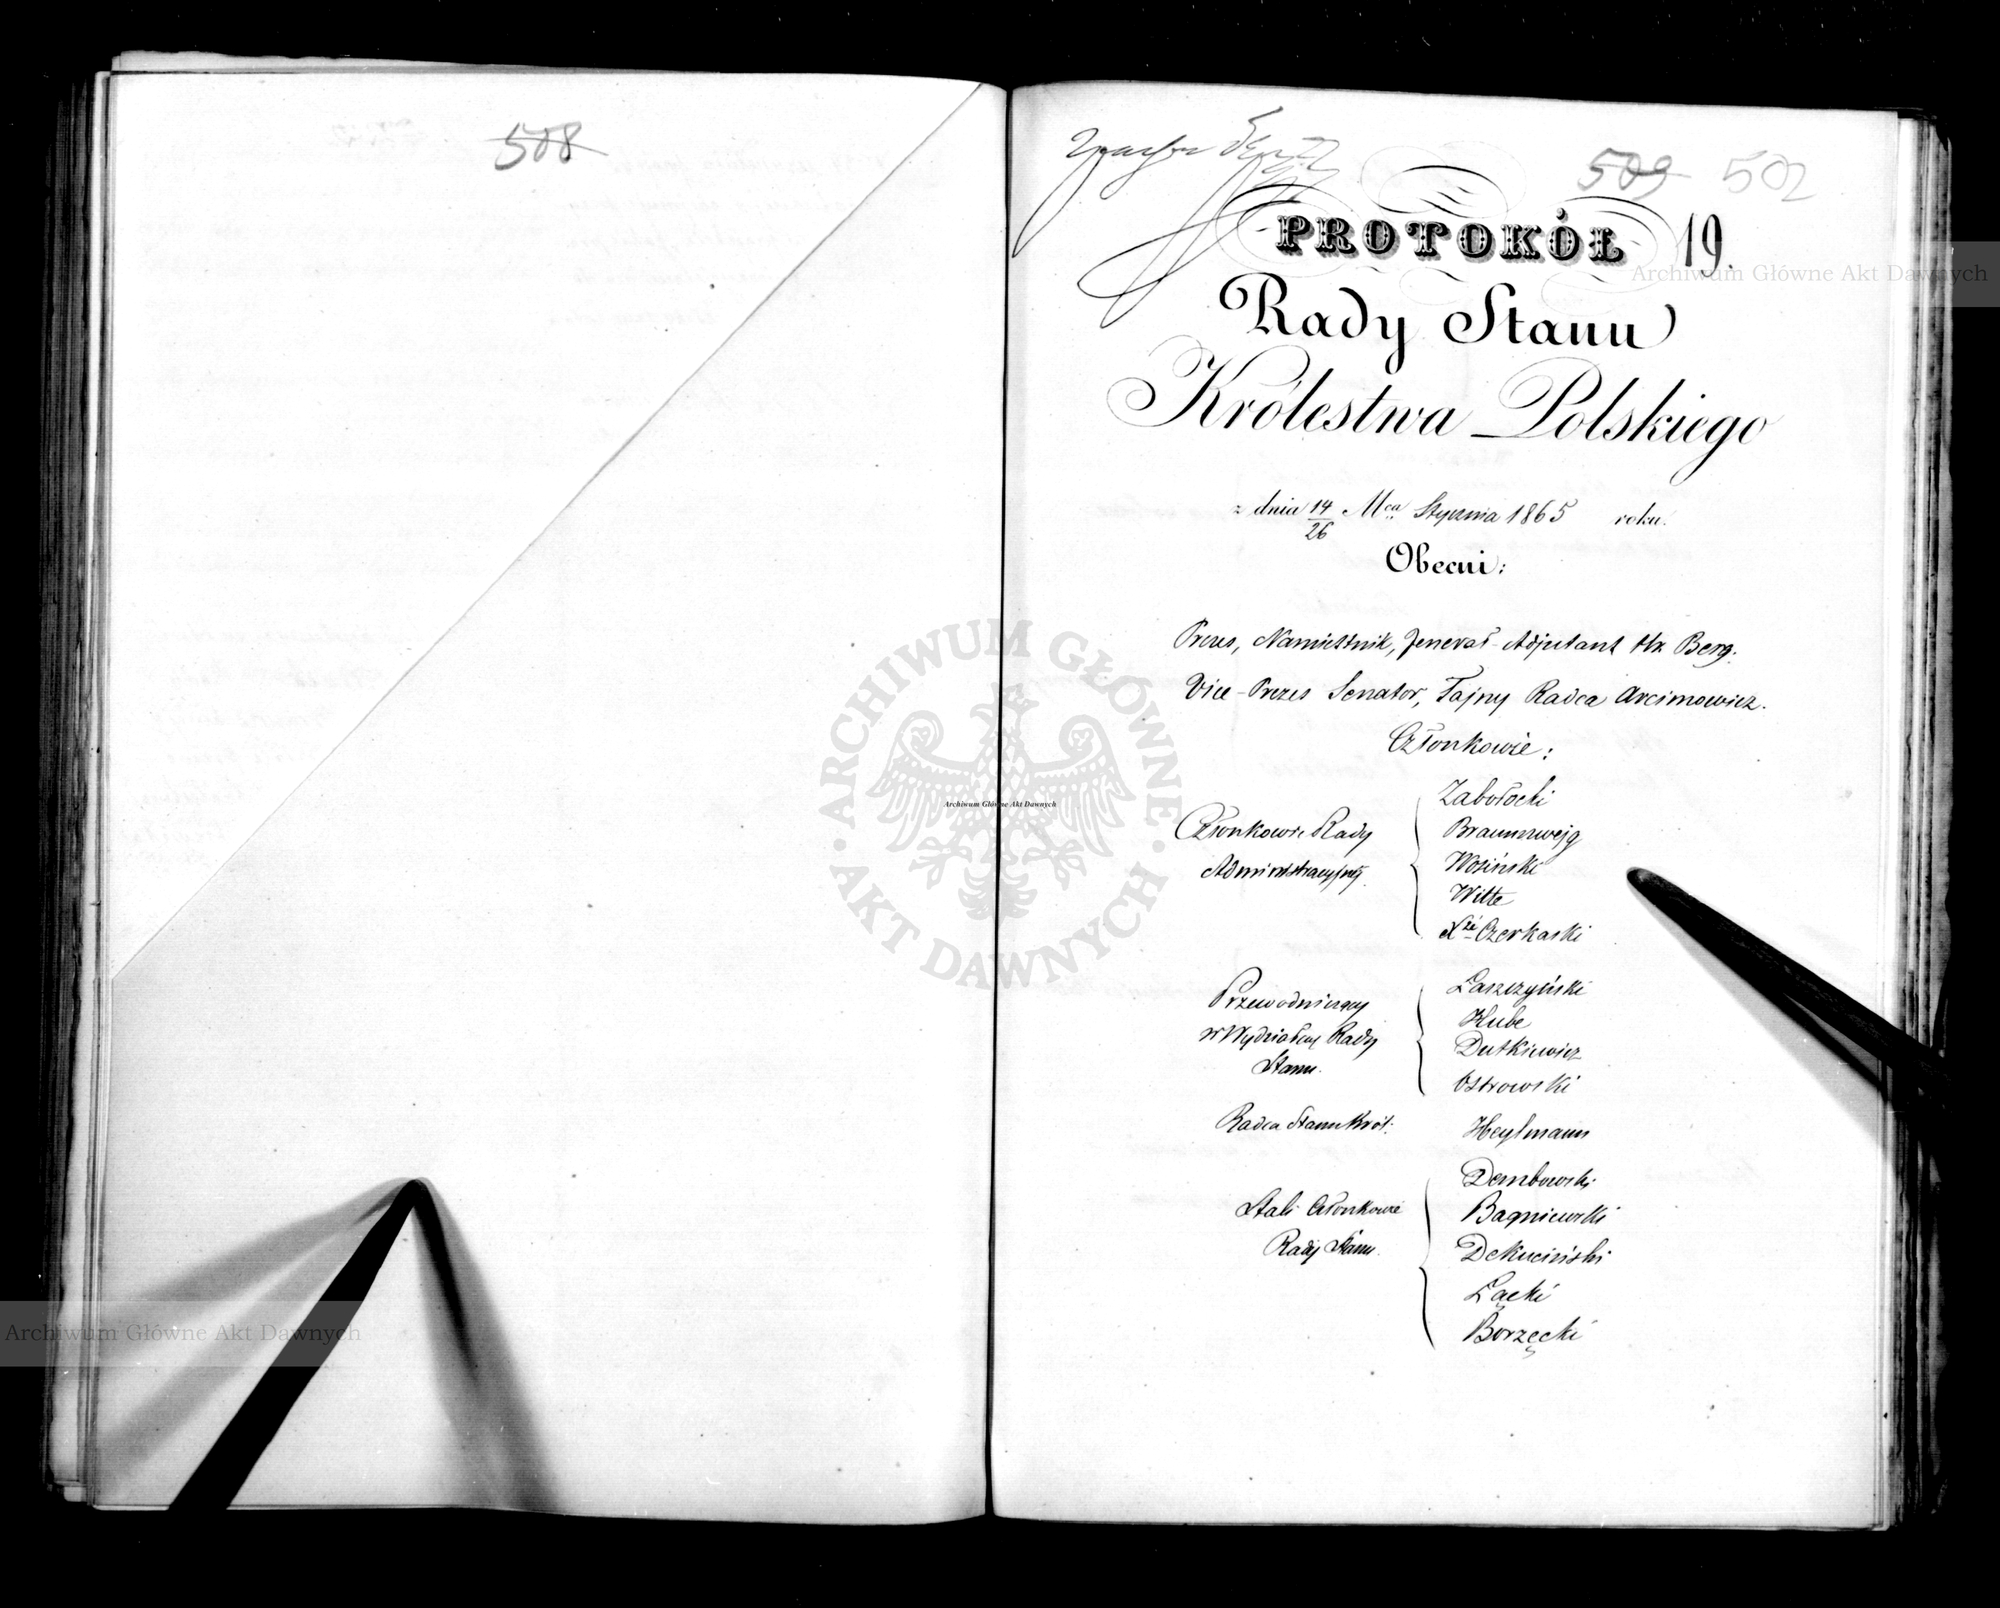 508
509 502
PROTOKÓŁ 19.
Rady Stanu
Królestwa Polskiego
z dnia 14/26 Mca Stycznia 1865 roku.
Obecni:
Prezes, Namiestnik, Jenerał-Adjutant Hr. Berg.
Vice-Prezes Senator, Tajny Radca Arcimowicz.
Członkowie:
Członkowie Rady
Administracyjnej.
Zabołocki
Braunszwejg
Wosiński
Witte
Xże Czerkaski
Przewodniczący
w Wydziałach Rady
Stanu.
Łaszczyński
Hube
Dutkiewicz
Ostrowski
Radca Stanu Król.
Heylmann
Stali Członkowie
Rady Stanu.
Dembowski
Bagniewski
Dekuciński
Łącki
Borzęcki
ARCHIWUM GŁÓWNE AKT DAWNYCH
Archiwum Główne Akt Dawnych
Archiwum Główne Akt Dawnych
Archiwum Główne Akt Dawnych